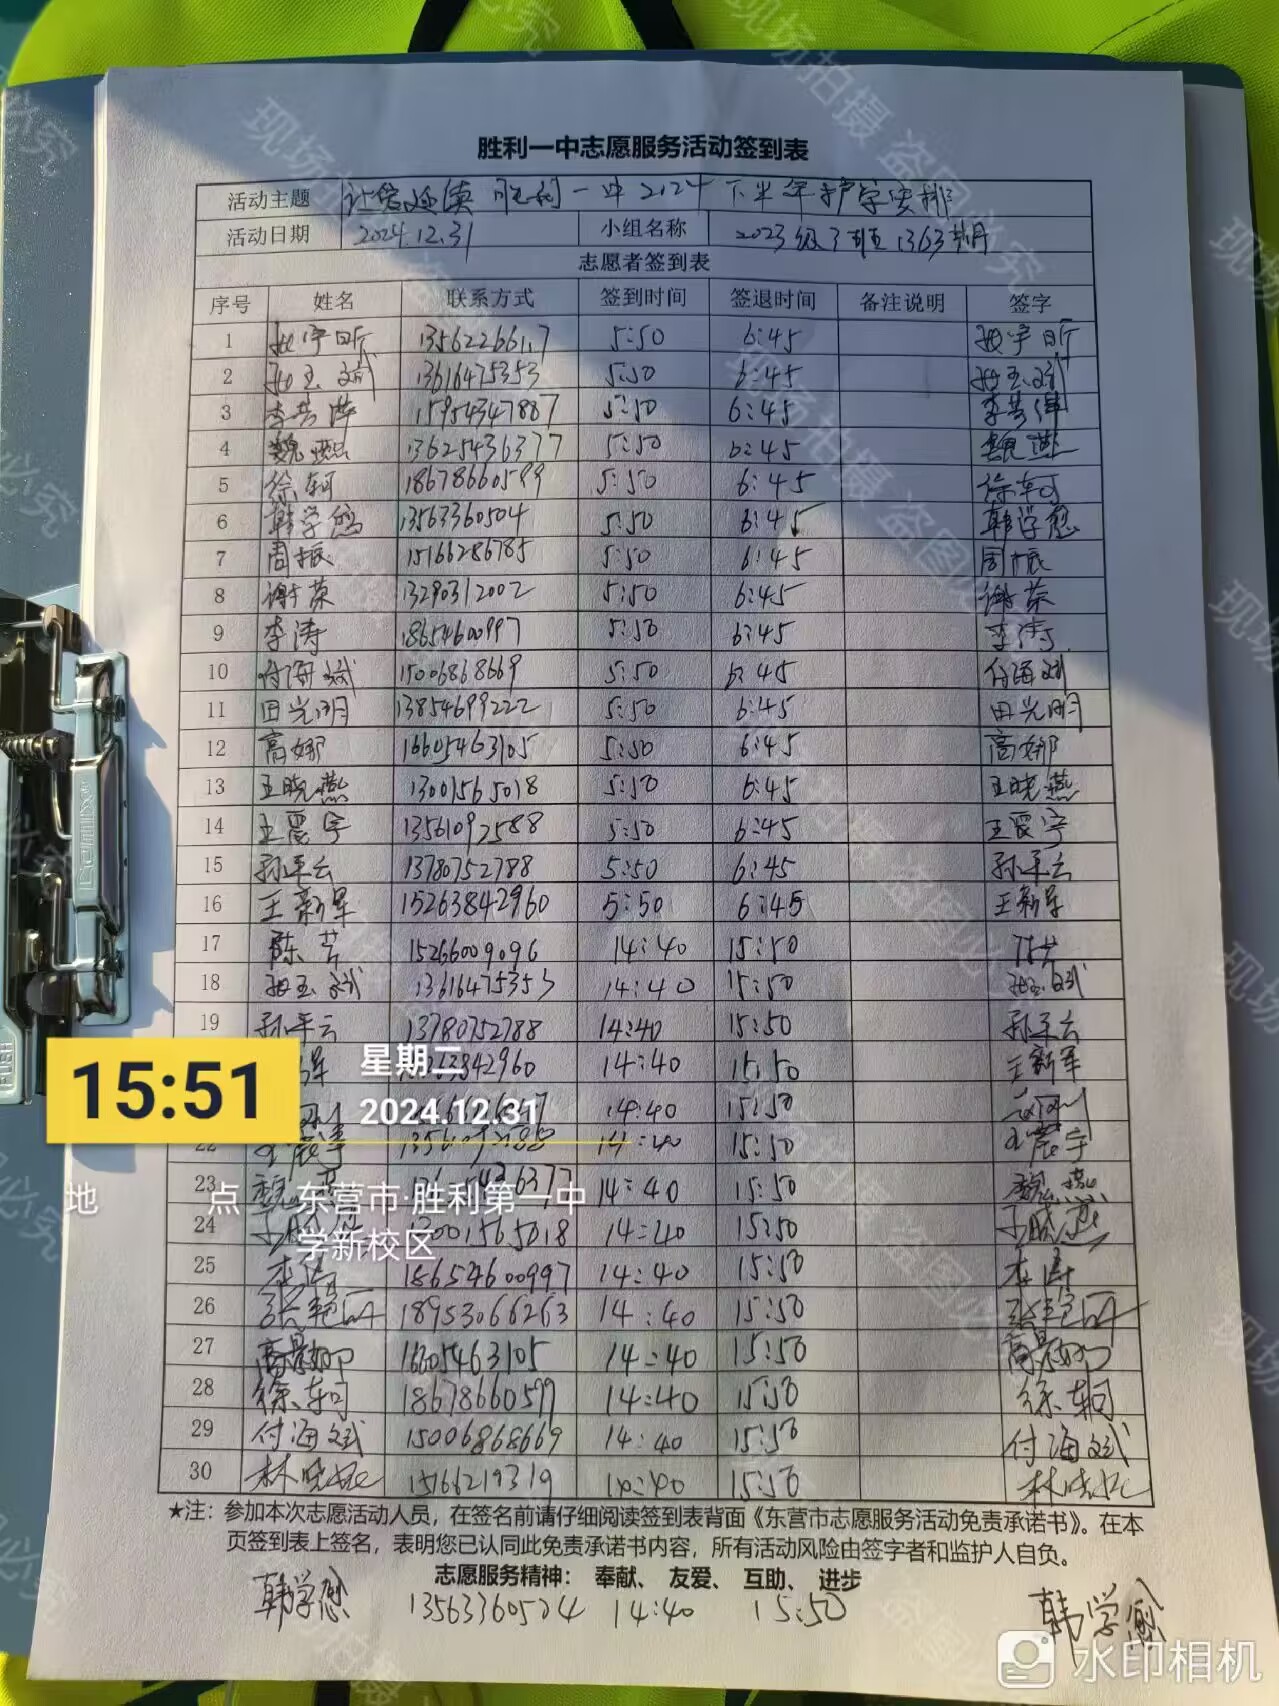 胜利一中志愿服务活动签到表
活动主题 让爱延续 胜利一中2024下半年护学安排
活动日期 2024.12.31 小组名称 2023级3班 1363期
志愿者签到表
序号 姓名 联系方式 签到时间 签退时间 备注说明 签字
1 5:50 6:45
2 13616475353 5:50 6:45
3 李芸萍 15954347887 5:50 6:45
4 魏燕 13625436377 5:50 6:45 魏燕
5 徐轲 18678660599 5:50 6:45 徐轲
6 韩学愈 13563360504 5:50 6:45 韩学愈
7 周振 15166286785 5:50 6:45 周振
8 谢荣 13290312002 5:50 6:45 谢荣
9 李涛 18654600997 5:50 6:45 李涛
10 付海斌 15006868669 5:50 6:45 付海斌
11 田光明 13854699222 5:50 6:45 田光明
12 高娜 16605463105 5:50 6:45 高娜
13 王晓燕 13001565018 5:50 6:45 王晓燕
14 王震宇 13561092588 5:50 6:45 王震宇
15 孙平云 13780752788 5:50 6:45 孙平云
16 王新军 15263842960 5:50 6:45 王新军
17 陈芹 15266009096 14:40 15:50 陈芹
18 13616475353 14:40 15:50
19 孙平云 13780752788 14:40 15:50 孙平云
军 3842960 14:40 15:50 王新军
14:40 15:50
22 14:40 15:50 王震宇
23 魏 6377 14:40 15:50 魏燕
24 001565018 14:40 15:50 王晓燕
25 李涛 18654600997 14:40 15:50 李涛
26 张艳研 18953066263 14:40 15:50 张艳研
27 16605463105 14:40 15:50
28 徐轲 18678660599 14:40 15:50 徐轲
29 付海斌 15006868669 14:40 15:50 付海斌
30 15166219319 14:40 15:50
★注：参加本次志愿活动人员，在签名前请仔细阅读签到表背面《东营市志愿服务活动免责承诺书》。在本
页签到表上签名，表明您已认同此免责承诺书内容，所有活动风险由签字者和监护人自负。
志愿服务精神： 奉献、 友爱、 互助、 进步
韩学愈 13563360504 14:40 15:50 韩学愈
15:51
星期二
2024.12.31
地 点 东营市·胜利第一中
学新校区
水印相机
现场拍摄 盗图必究
PUSH